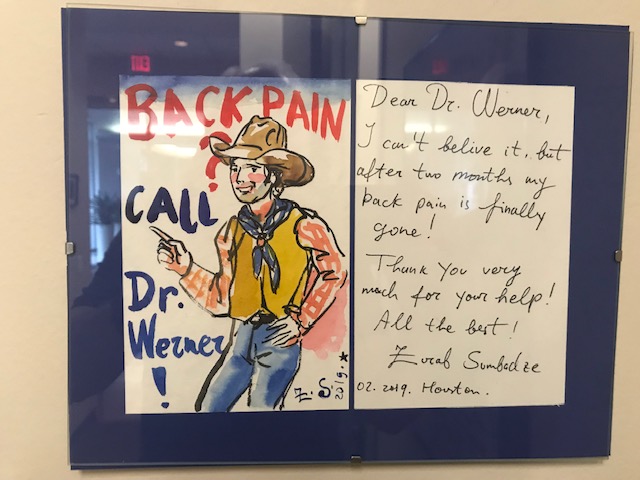 BACK PAIN
?
CALL
Dr.
Werner
!
Z.S.
2019.
Dear Dr. Werner,
I can't belive it, but
after two months my
back pain is finally
gone!
Thank you very
much for your help!
All the best!
Zurab Sumbadze
02. 2019. Houston.